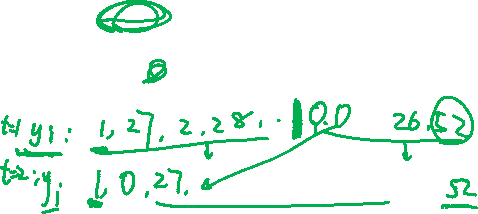 t=1 y1: 1, 27, 2, 28, .. 0,0 26, 52
t=2: yj 1, 0, 27, 52